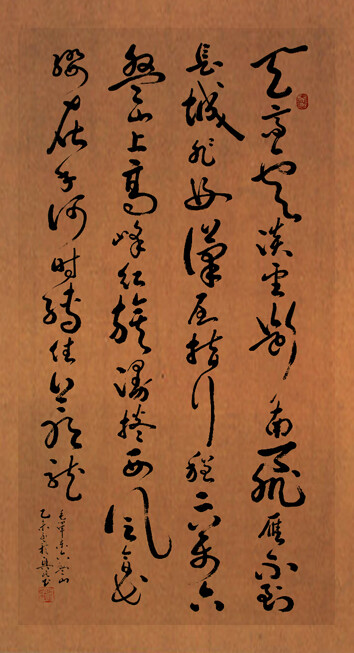 天高雲淡望斷南飛雁不到
長城非好漢屈指行程二万六
盤山上高峰紅旗漫捲西風今日長
纓在手何時縛住蒼龍
毛澤東六盤山
乙未書於